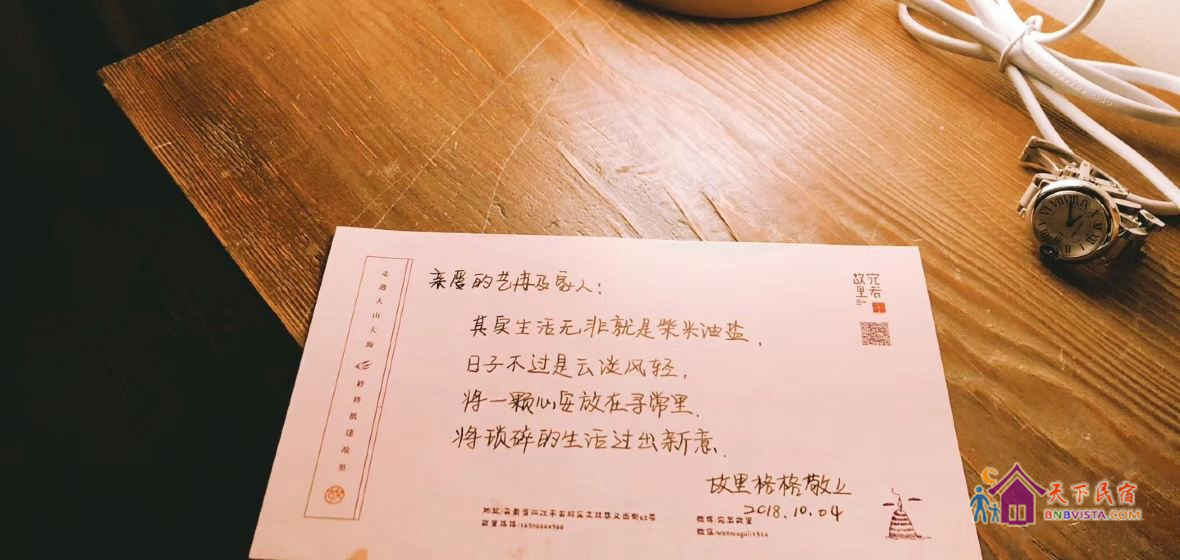 亲爱的艺冉及家人:
其实生活无非就是柴米油盐,
日子不过是云淡风轻,
将一颗心安放在寻常里,
将琐碎的生活过出新意.
故里格格敬上
2018.10.04
宛若
故里
走过大山大海
终将抵达故里
天下民宿
BNBVISTA.COM